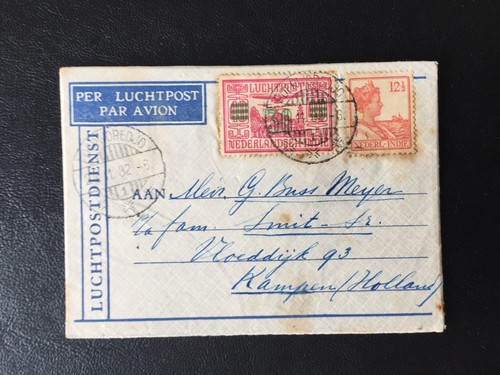 PER LUCHTPOST
PAR AVION
LUCHTPOSTDIENST
LUCHTPOST
50
NEDERLANDSCH-INDIË
12½
NEDERL-INDIË
AAN Mevr. G. Buss Meyer
p/a fam. Smit-Sr.
Vloeddijk 93
Kampen (Holland)